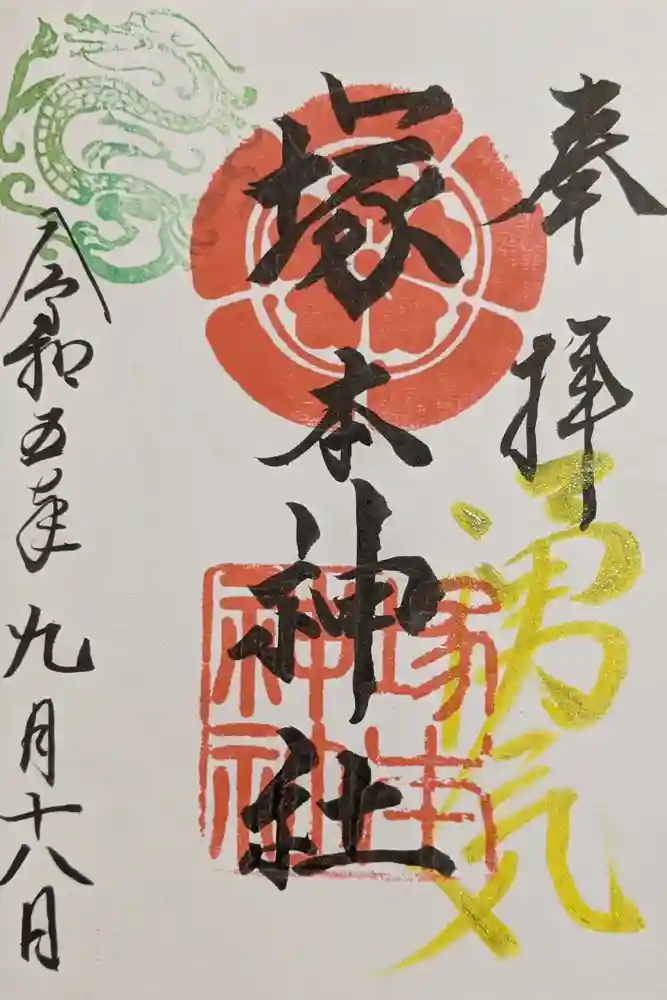 奉拝
勇気
塚本神社
令和五年九月十八日